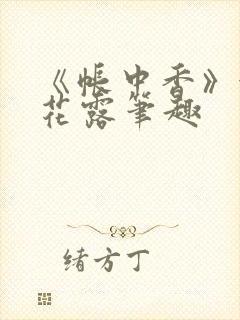 《帐中香》
花露笔趣
绪方丁